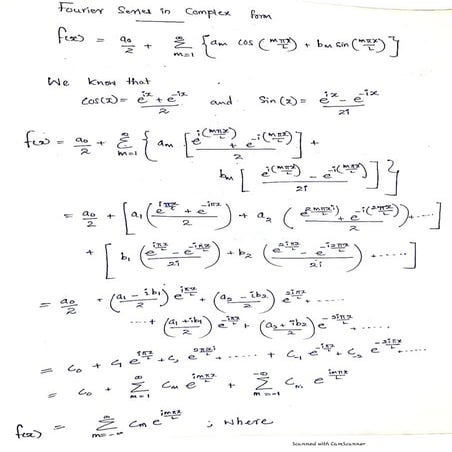 Fourier Series in Complex form
f(x) = a₀/2 + ∑_{m=1}^{∞} { aₘ cos (mπx/L) + bₘ sin (mπx/L) }
We know that
cos(x) = (e^{ix} + e^{-ix})/2 and sin(x) = (e^{ix} - e^{-ix})/2i
f(x) = a₀/2 + ∑_{m=1}^{∞} { aₘ [ (e^{i(mπx/L)} + e^{-i(mπx/L)})/2 ] +
bₘ [ (e^{i(mπx/L)} - e^{-i(mπx/L)})/2i ] }
= a₀/2 + [ a₁ ( (e^{iπx/L} + e^{-iπx/L})/2 ) + a₂ ( (e^{2πxi/L} + e^{-i(2πx/L)})/2 ) + ..... ]
+ [ b₁ ( (e^{iπx/L} - e^{-iπx/L})/2i ) + b₂ ( (e^{2iπx/L} - e^{-i2πx/L})/2i ) + ..... ]
= a₀/2 + ((a₁ - ib₁)/2) e^{iπx/L} + ((a₂ - ib₂)/2) e^{2iπx/L} + .....
....+ ((a₁ + ib₁)/2) e^{-iπx/L} + ((a₂ + ib₂)/2) e^{-2iπx/L} .....
= c₀ + c₁ e^{iπx/L} + c₂ e^{2πxi/L} + ..... + e^{-iπx/L} + e^{-2iπx/L} .....
= c₀ + ∑_{m=1}^{∞} cₘ e^{imπx/L} + ∑_{m=-1}^{-∞} cₘ e^{imπx/L}
f(x) = ∑_{m=-∞}^{∞} cₘ e^{imπx/L} ; where
Scanned with CamScanner